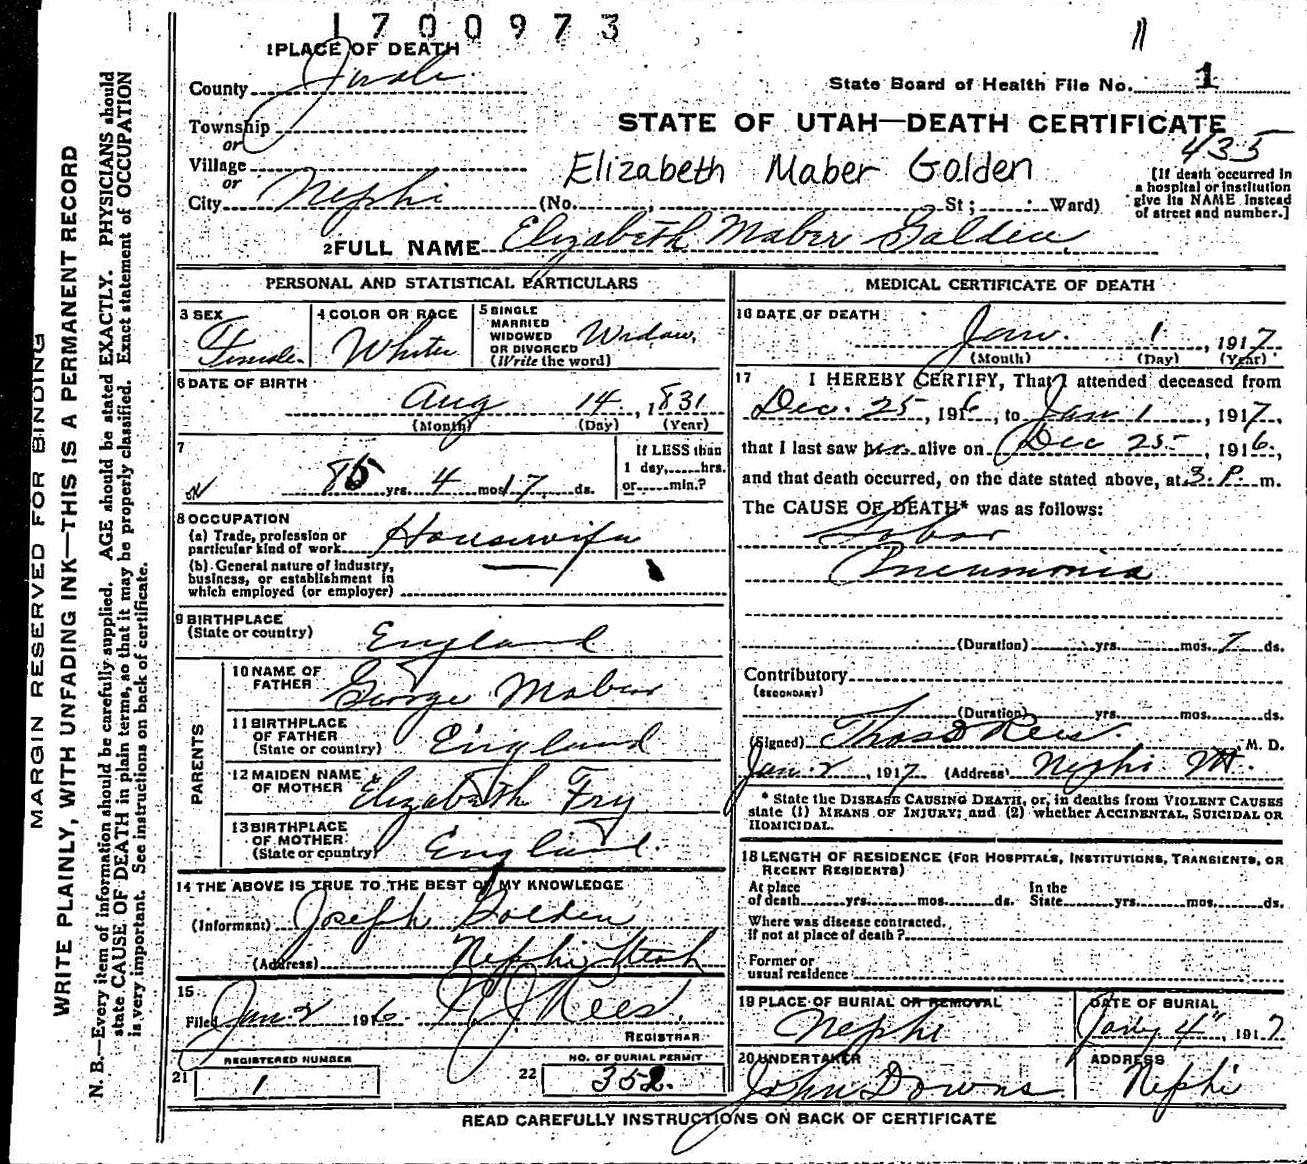 1700973
11
1 PLACE OF DEATH
County Juab
State Board of Health File No. 1
Township
or
STATE OF UTAH—DEATH CERTIFICATE
435
Village
or
Elizabeth Maber Golden
City Nephi (No. , St; Ward)
[If death occurred in
a hospital or institution
give its NAME instead
of street and number.]
2 FULL NAME Elizabeth Maber Golden
PERSONAL AND STATISTICAL PARTICULARS
3 SEX
Female
4 COLOR OR RACE
White
5 SINGLE
MARRIED
WIDOWED
OR DIVORCED
(Write the word)
Widow
6 DATE OF BIRTH
Aug 14, 1831
(Month) (Day) (Year)
7
85 yrs. 4 mos. 17 ds.
If LESS than
1 day, hrs.
or min.?
8 OCCUPATION
(a) Trade, profession or
particular kind of work Housewife
(b) General nature of industry,
business, or establishment in
which employed (or employer)
9 BIRTHPLACE
(State or country) England
PARENTS
10 NAME OF
FATHER George Maber
11 BIRTHPLACE
OF FATHER
(State or country) England
12 MAIDEN NAME
OF MOTHER Elizabeth Fry
13 BIRTHPLACE
OF MOTHER
(State or country) England.
14 THE ABOVE IS TRUE TO THE BEST OF MY KNOWLEDGE
(Informant) Joseph Golden
(Address) Nephi Utah
15
Filed Jan 2 1916 Rees.
REGISTRAR
REGISTERED NUMBER
21 1
NO. OF BURIAL PERMIT
22 352.
MEDICAL CERTIFICATE OF DEATH
16 DATE OF DEATH
Jan. 1, 1917
(Month) (Day) (Year)
17 I HEREBY CERTIFY, That I attended deceased from
Dec. 25, 1916, to Jan 1, 1917,
that I last saw her alive on Dec 25, 1916,
and that death occurred, on the date stated above, at 3.P. m.
The CAUSE OF DEATH* was as follows:
Lobar
Pneumonia
(Duration) yrs. mos. 7 ds.
Contributory
(SECONDARY)
(Duration) yrs. mos. ds.
(Signed) Thos D Rees. M. D.
Jan 2, 1917 (Address) Nephi Ut.
* State the DISEASE CAUSING DEATH, or, in deaths from VIOLENT CAUSES
state (1) MEANS OF INJURY; and (2) whether ACCIDENTAL, SUICIDAL OR
HOMICIDAL.
18 LENGTH OF RESIDENCE (FOR HOSPITALS, INSTITUTIONS, TRANSIENTS, OR
RECENT RESIDENTS)
At place In the
of death yrs. mos. ds. State yrs. mos. ds.
Where was disease contracted,
If not at place of death?
Former or
usual residence
19 PLACE OF BURIAL OR REMOVAL
Nephi
DATE OF BURIAL
Jany 4" 1917
20 UNDERTAKER
John Downs
ADDRESS
Nephi
READ CAREFULLY INSTRUCTIONS ON BACK OF CERTIFICATE
MARGIN RESERVED FOR BINDING
WRITE PLAINLY, WITH UNFADING INK—THIS IS A PERMANENT RECORD
N. B.—Every item of information should be carefully supplied. AGE should be stated EXACTLY. PHYSICIANS should
state CAUSE OF DEATH in plain terms, so that it may be properly classified. Exact statement of OCCUPATION
is very important. See instructions on back of certificate.